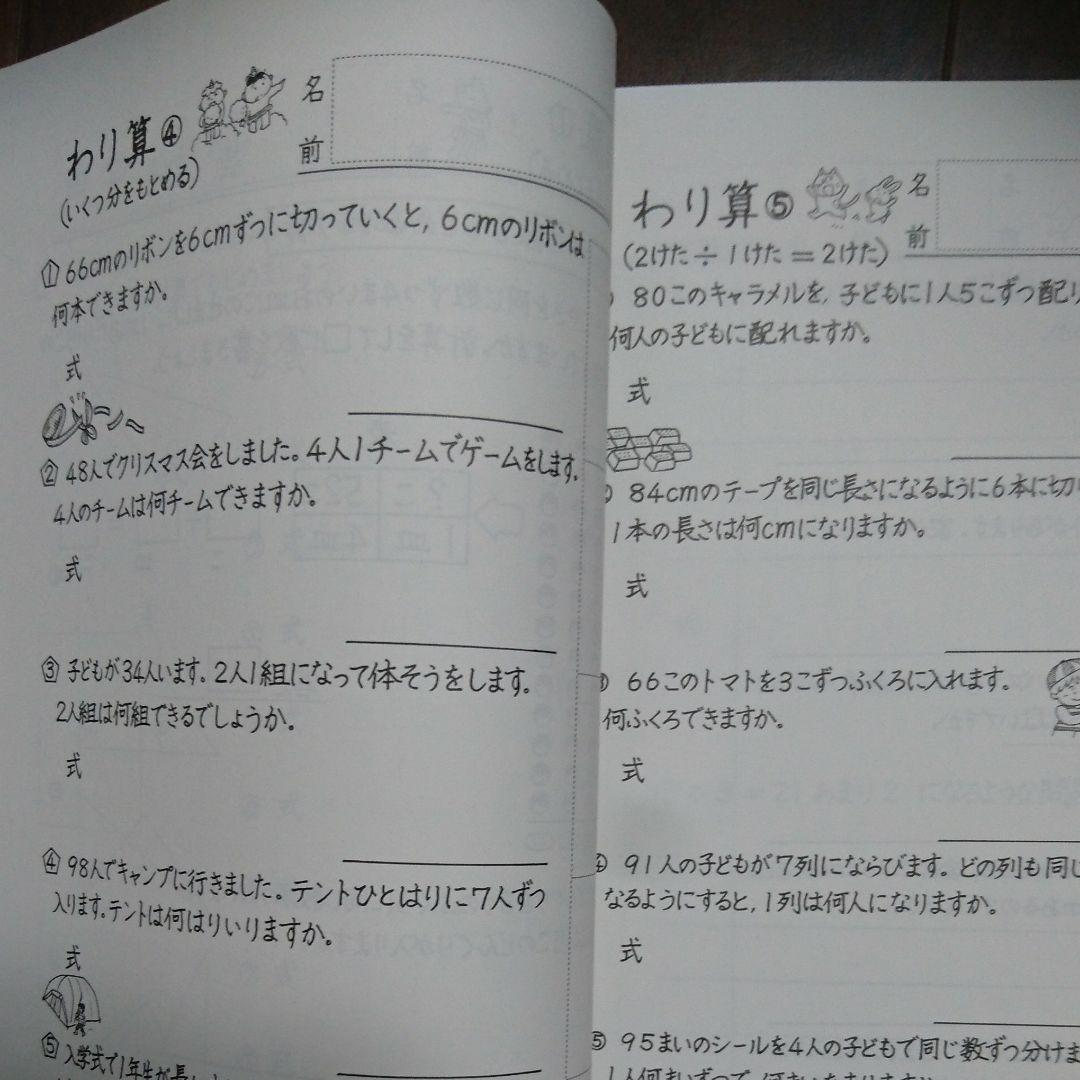 わり算④
名前
(いくつ分をもとめる)
① 66cmのリボンを6cmずつに切っていくと,6cmのリボンは
何本できますか。
式
② 48人でクリスマス会をしました。4人1チームでゲームをします。
4人のチームは何チームできますか。
式
③ 子どもが34人います。2人1組になって体そうをします。
2人組は何組できるでしょうか。
式
④ 98人でキャンプに行きました。テントひとはりに7人ずつ
入ります。テントは何はりいりますか。
式
⑤ 入学式で1年生が長
わり算⑤
名前
(2けた÷1けた=2けた)
80このキャラメルを,子どもに1人5こずつ配り
何人の子どもに配れますか。
式
84cmのテープを同じ長さになるように6本に切
1本の長さは何cmになりますか。
式
66このトマトを3こずつふくろに入れます。
何ふくろできますか。
式
④ 91人の子どもが7列にならびます。どの列も同じ
なるようにすると,1列は何人になりますか。
式
⑤ 95まいのシールを4人の子どもで同じ数ずつ分けま
1人何まいずつで,何まいあまりますか